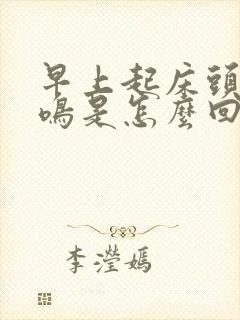 早上起床頭
鳴是怎麼回
李瀅嫣